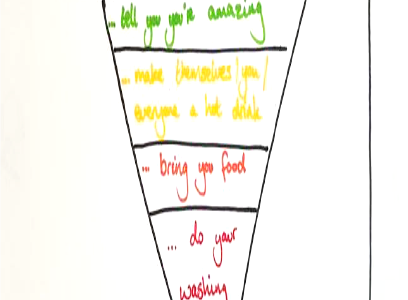 ... tell you you're amazing
... make themselves/you/
everyone a hot drink
... bring you food
... do your
washing